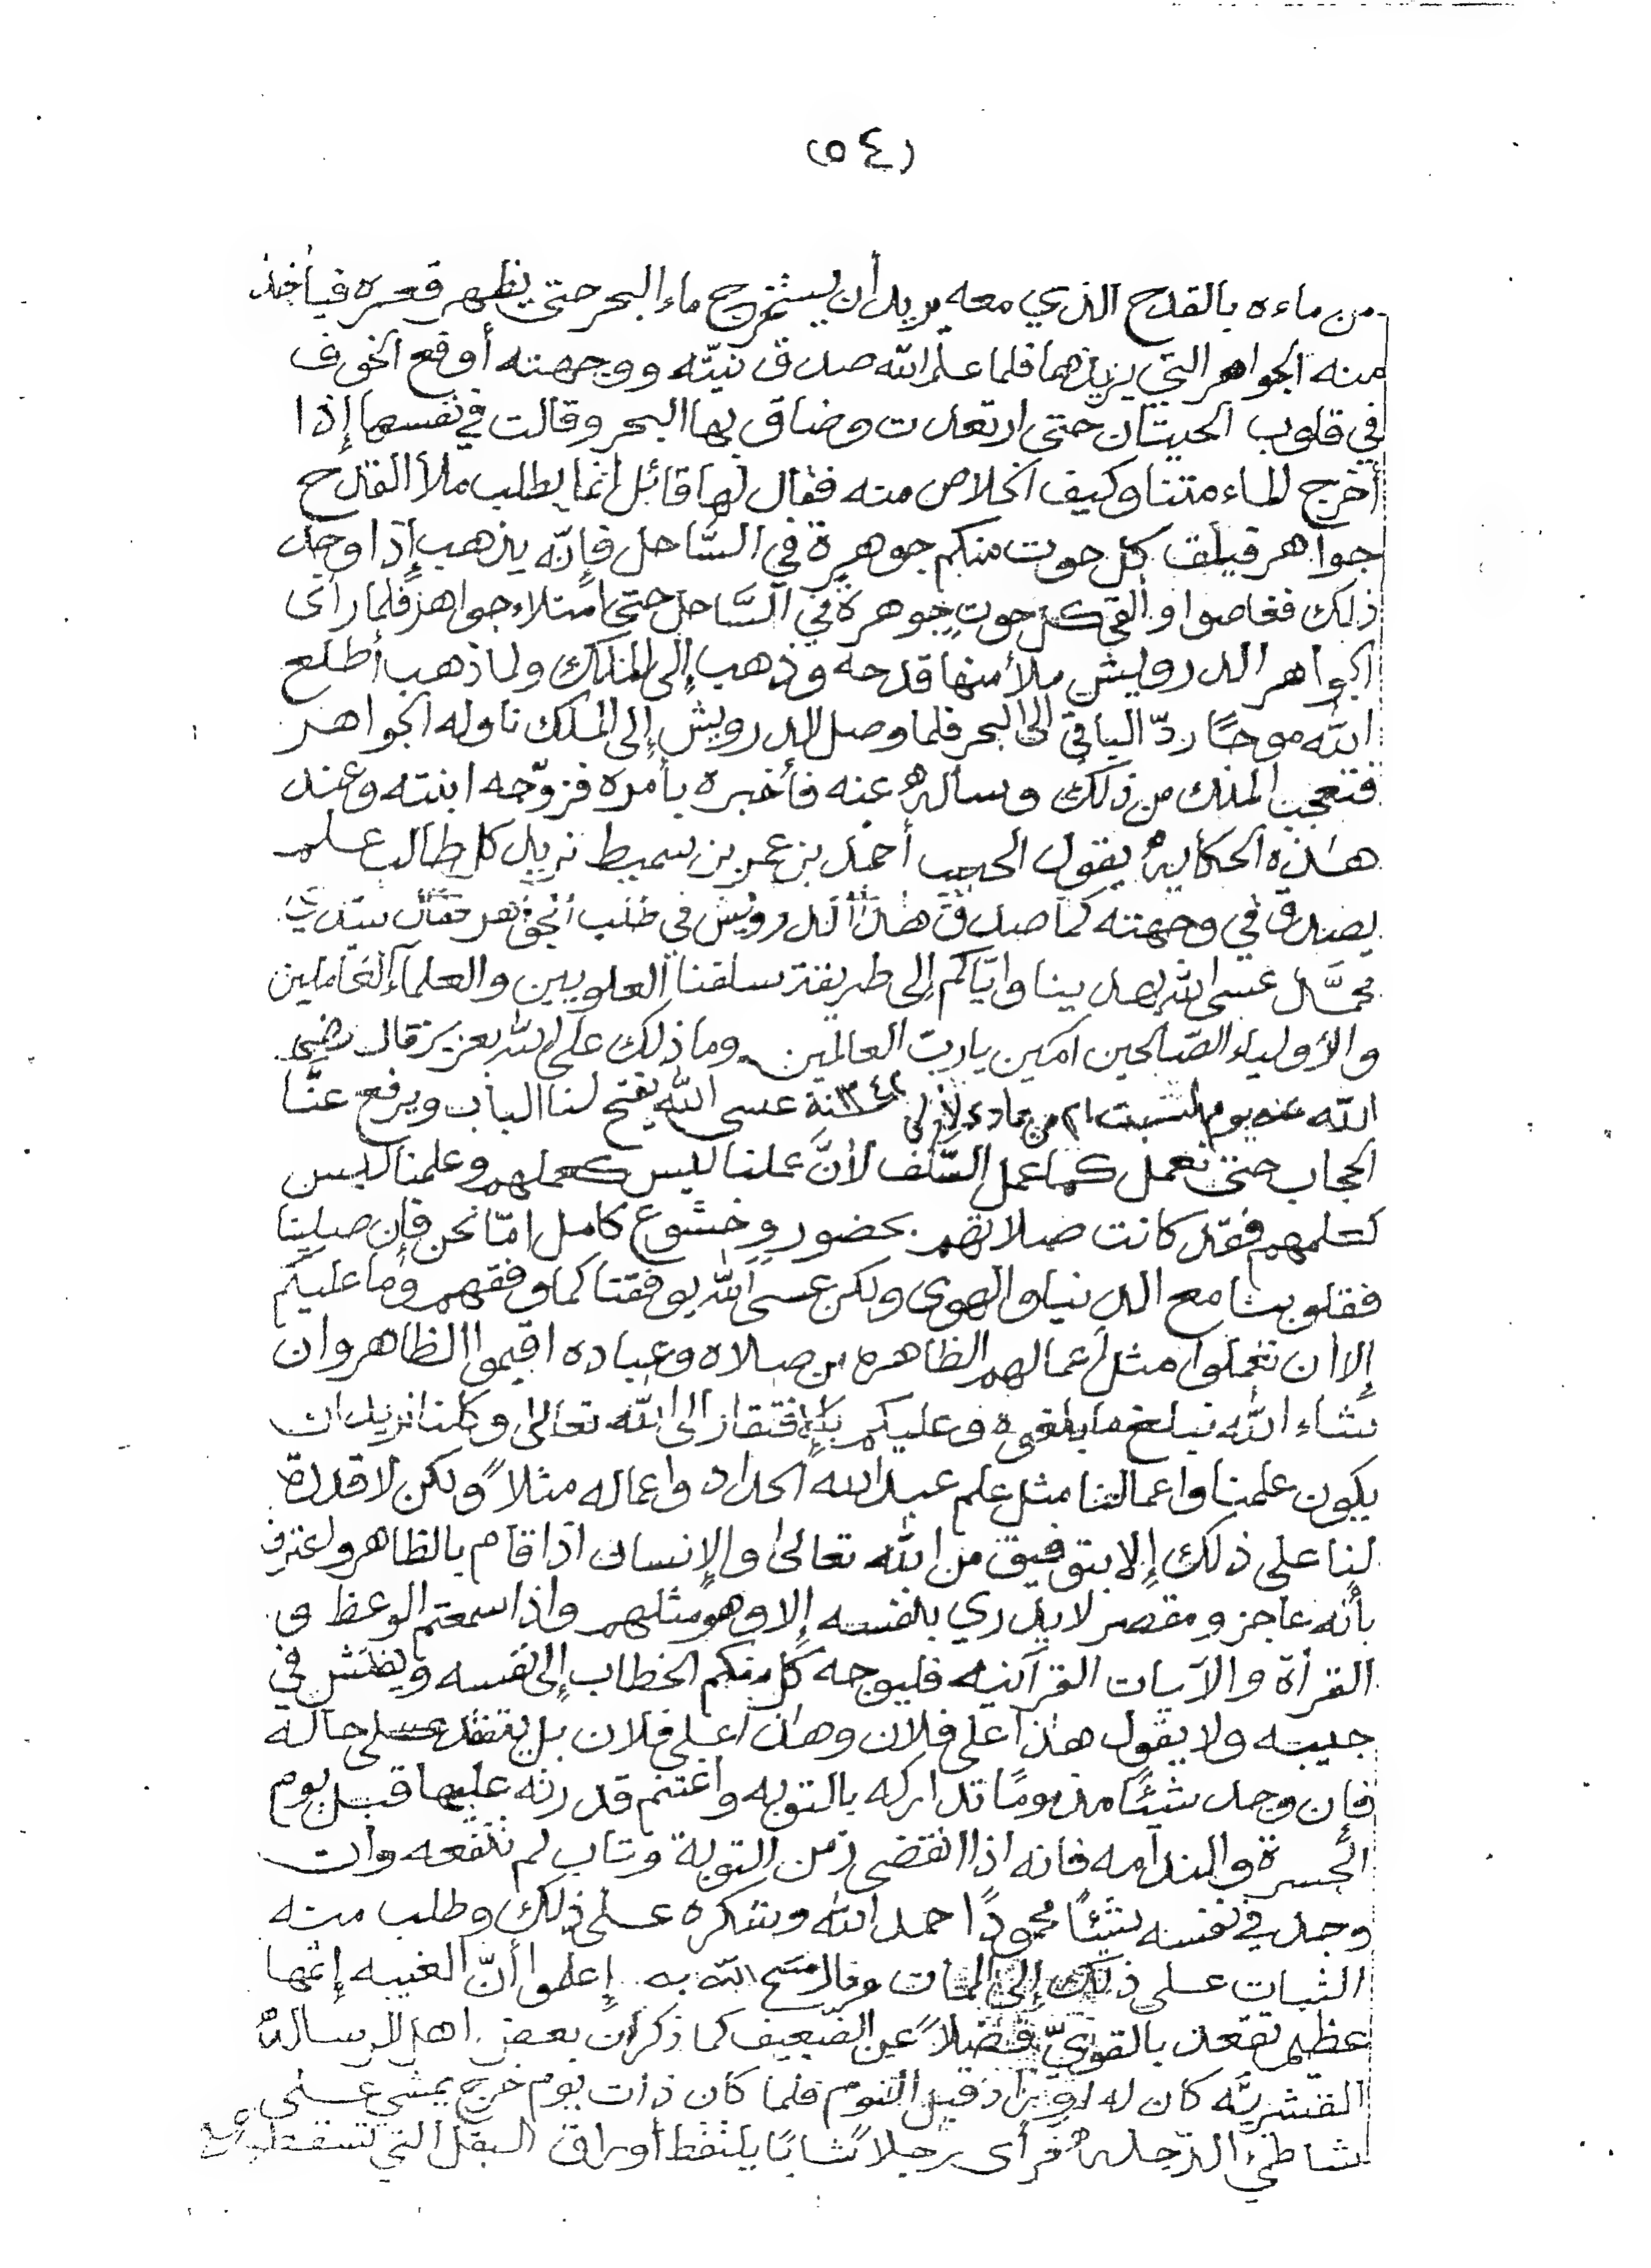 (٥٤)
من ماءه بالقدح الذي معه يريد أن يستخرج ماء البحر حتى يظهر قعره فيأخذ
منه الجواهر التي يريدها فلما علم الله صدق نيّته ووجهته أوقع الخوف
في قلوب الحيتان حتى ارتعدت وضاق بها البحر وقالت في نفسها إذا
أخرج الماء متنا وكيف الخلاص منه فقال لها قائل انما يطلب ملأ القدح
جواهر فيلق كل حوت منكم جوهرة في السّاحل فإنّه يذهب إذا وجد
ذلك فغاصوا وألقى كل حوتٍ جوهرة في السَّاحل حتى امتلاء جواهر فلما رأى
الجواهر الدرويش ملأ منها قدحه وذهب إلى الملك ولما ذهب أطلع
الله موجًا ردّ الباقي الى البحر فلما وصل الدرويش إلى الملك ناوله الجواهر
فتعجب الملك من ذلك وسأله عنه فأخبره بأمره فزوّجه ابنته وعند
هذه الحكاية يقول الحبيب أحمد بن عمر بن سميط نريد كل طالب علم
يصدق في وجهته كما صدق هذا الدرويش في طلب الجواهر فقال سيدي
محمَّد عسى الله يهدينا وايّاكم إلى طريقة سلفنا العلويين والعلماء العاملين
والأولياء الصّالحين امين يارب العالمين وما ذلك على الله بعزيز قال رضي
الله عنه يوم السبت ٢١ من جماد الأولى ١٣٤٢ سنة عسى الله يفتح لنا الباب ويرفع عنّا
الحجاب حتى نعمل كما عمل السّلف لأنَّ عملنا ليس كعملهم وعلمنا ليس
كعلمهم فقد كانت صلاتهم بحضور وخشوع كامل امّا نحن فإن صلينا
فقلوبنا مع الدنيا والهوى ولكن عسى الله يوفقنا كما وفقهم وما عليكم
إلا ان تعملوا مثل أعمالهم الظاهره من صلاه وعباده اقيموا الظاهر وان
شاء الله نبلغ ما بلغوه وعليكم بالإفتقار الى الله تعالى وكلنا نريد ان
يكون علمنا واعمالنا مثل علم عبد الله الحداد واعماله مثلاً ولكن لا قدرة
لنا على ذلك إلا بتوفيق من الله تعالى والإنسان اذا قام بالظاهر واعترف
بأنه عاجز ومقصر لا يدري بنفسه إلا وهو مثلهم واذا سمعتم الوعظ و
القرأة والآيات القرآنيه فليوجه كل منكم الخطاب إلى نفسه ويفتش في
جيبه ولا يقول هذا على فلان وهذا على فلان بل يتفقد على حاله
فإن وجد شيئًا مذمومًا تداركه بالتوبه واغتنم قدرته عليها قبل يوم
الحسرة والندامه فانه اذا انقضى زمن التوبة وتاب لم تنفعه وان
وجد في نفسه شيئًا محمودًا حمد الله وشكره على ذلك وطلب منه
الثبات على ذلك إلى الممات وقال متع الله به إعلموا أنّ الغيبه إثمها
عظيم تقعد بالقويّ فضلاً عن الضعيف كما ذكر أن بعض اهل الرساله
القشريّه كان له اوراد قبل النوم فلما كان ذات يوم خرج يمشي على
شاطئ الدجله فرأى رجلاً شابًا يلتقط أوراق البقل التي تسقط